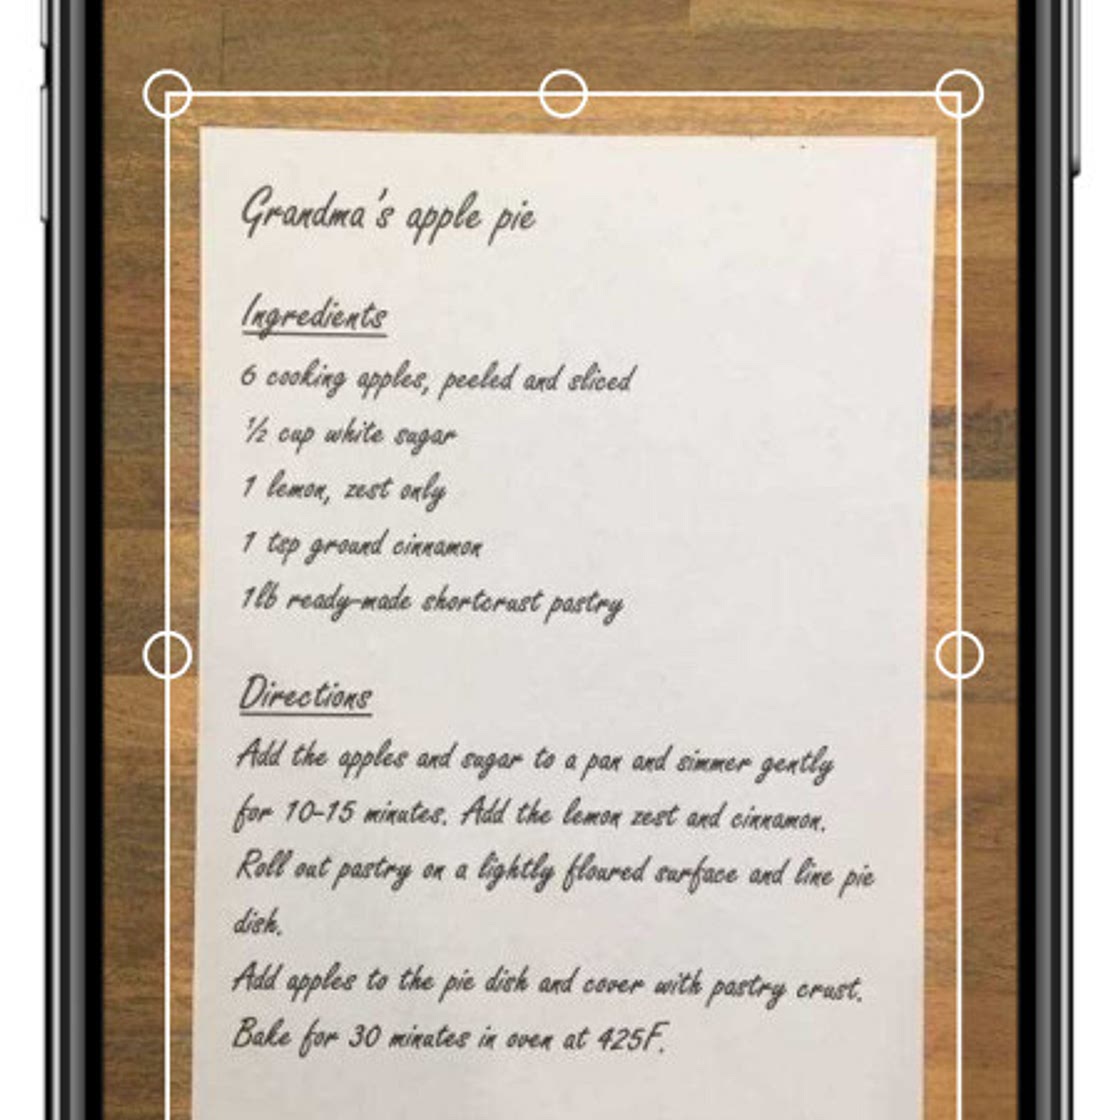 Grandma's apple pie
Ingredients
6 cooking apples, peeled and sliced
½ cup white sugar
1 lemon, zest only
1 tsp ground cinnamon
1lb ready-made shortcrust pastry
Directions
Add the apples and sugar to a pan and simmer gently
for 10-15 minutes. Add the lemon zest and cinnamon.
Roll out pastry on a lightly floured surface and line pie
dish.
Add apples to the pie dish and cover with pastry crust.
Bake for 30 minutes in oven at 425F.